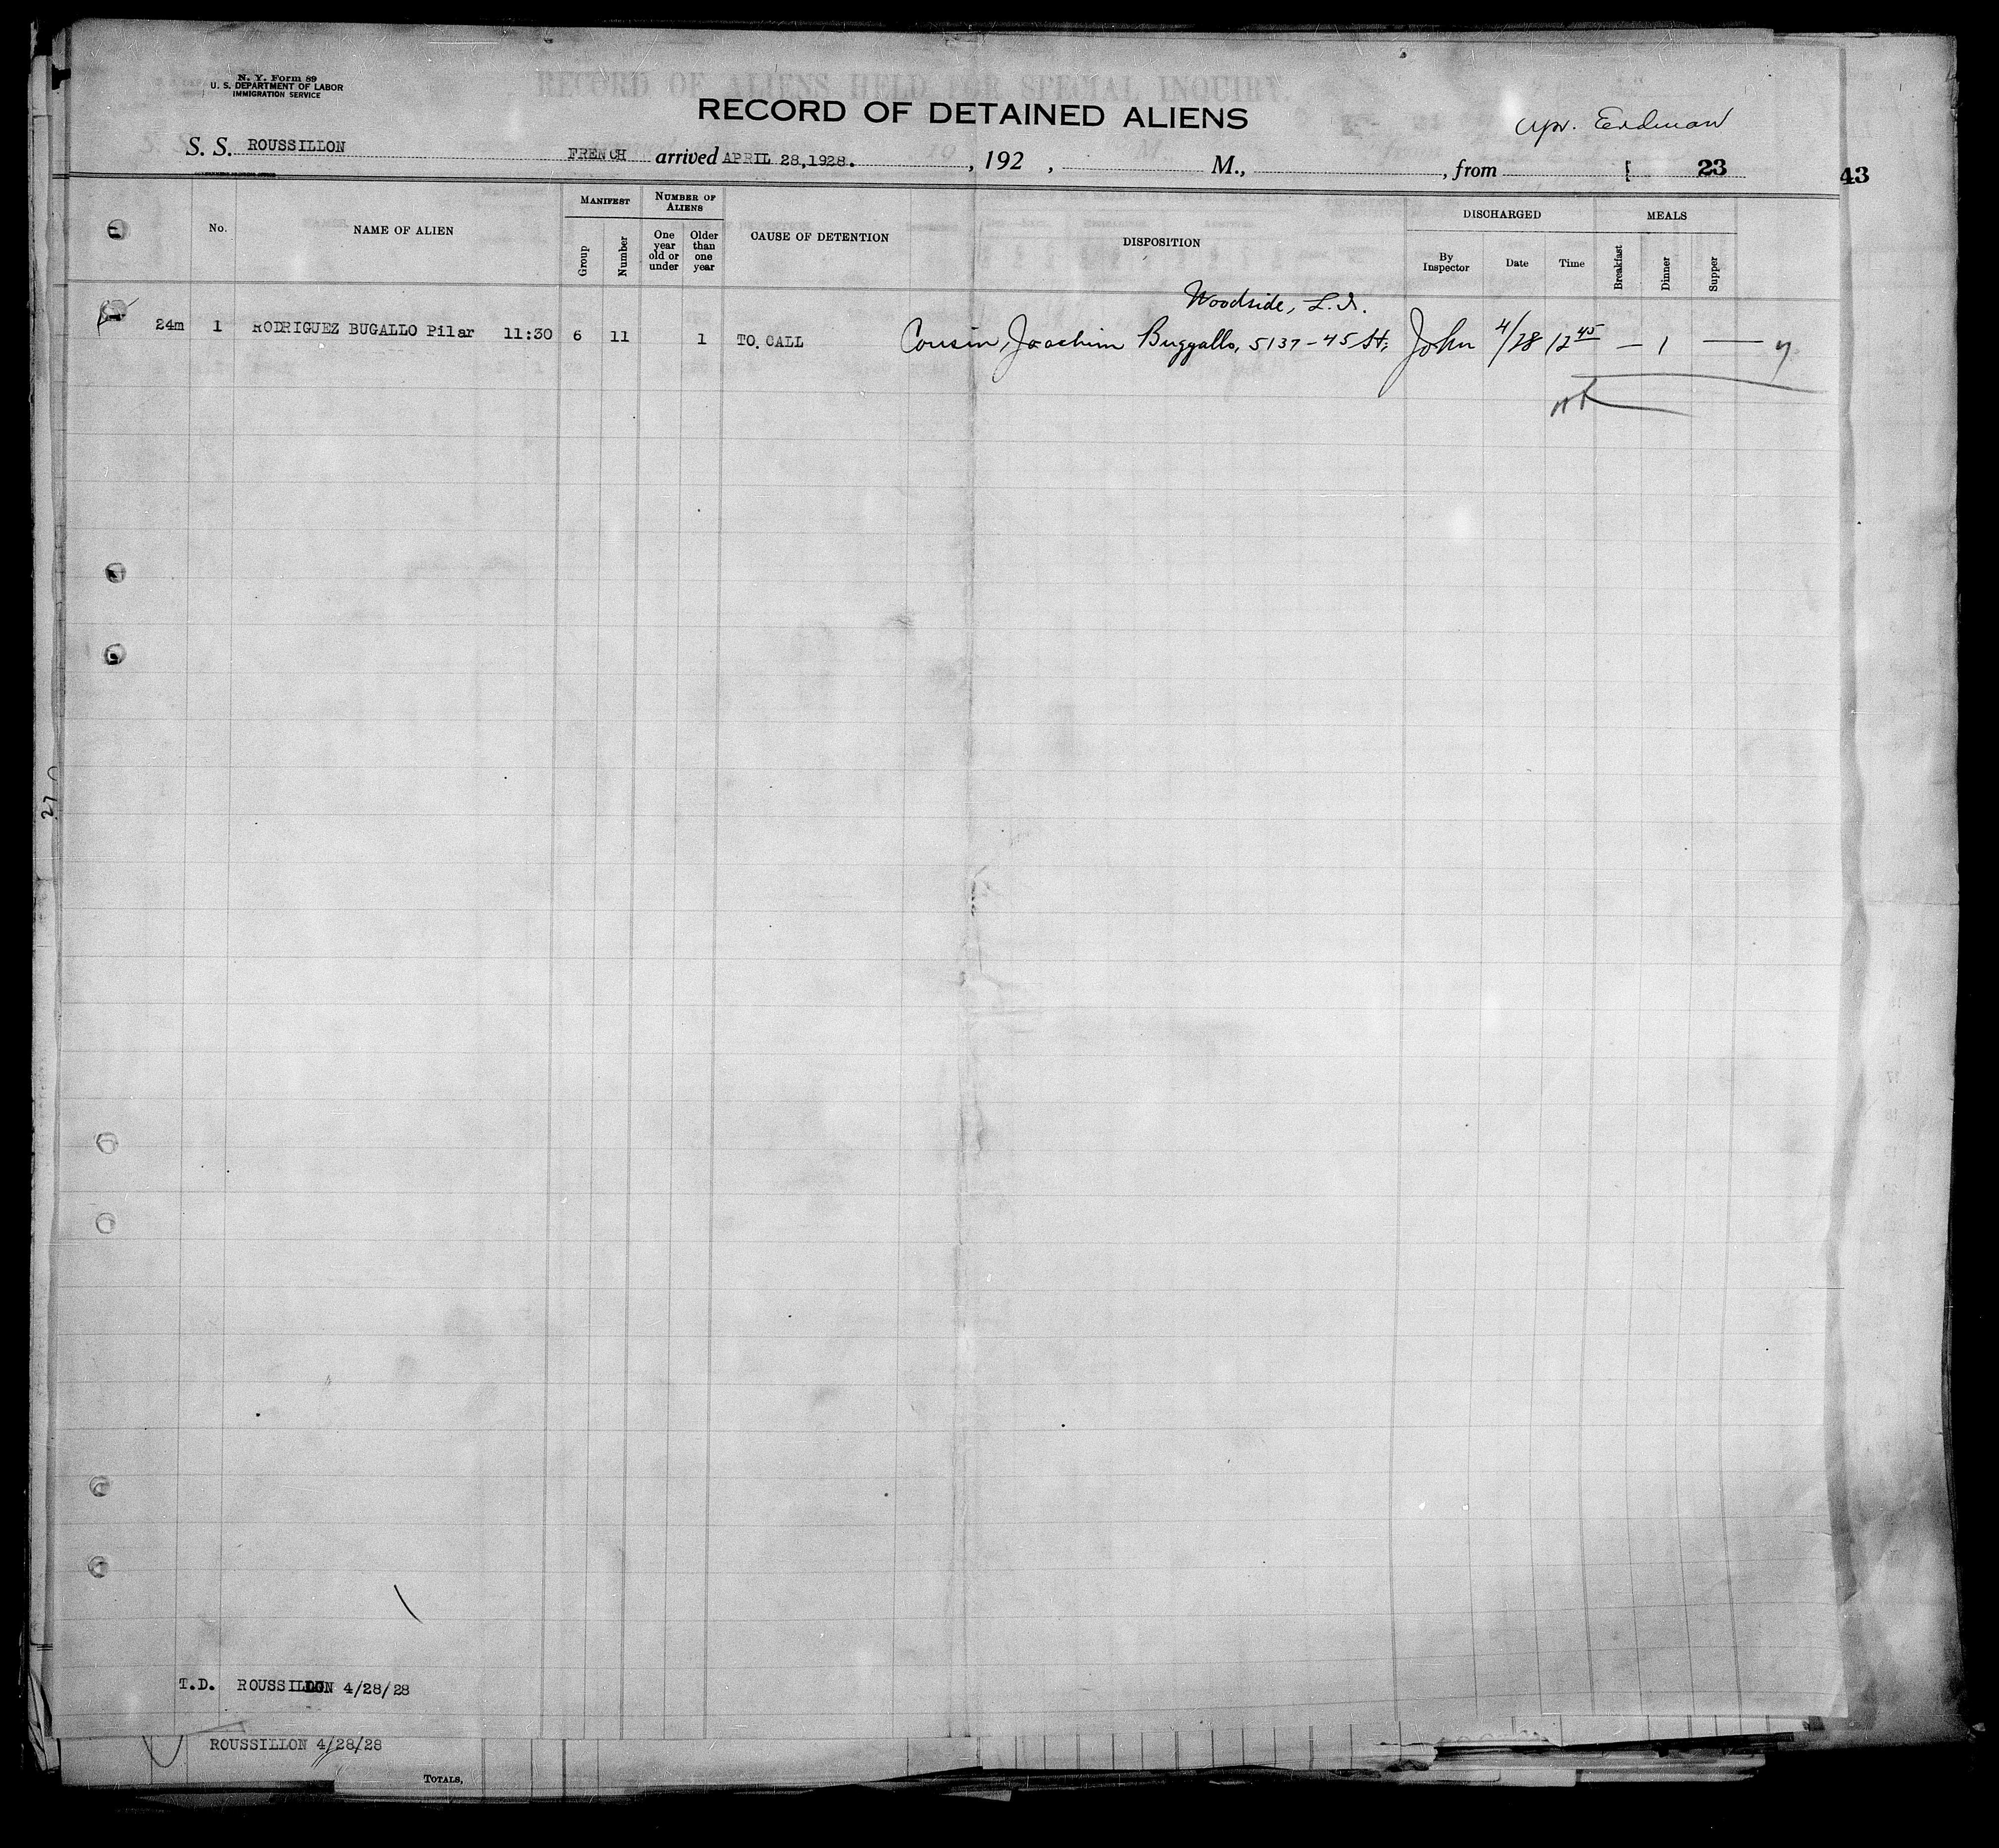 N. Y. Form 89
U. S. DEPARTMENT OF LABOR
IMMIGRATION SERVICE
RECORD OF ALIENS HELD FOR SPECIAL INQUIRY.
RECORD OF DETAINED ALIENS
Erdman
S. S. ROUSSILLON FRENCH arrived APRIL 28, 1928. , 192 , M., , from 23
43
No. NAME OF ALIEN MANIFEST NUMBER OF ALIENS CAUSE OF DETENTION DISPOSITION DISCHARGED MEALS
Group Number One year old or under Older than one year By Inspector Date Time Breakfast Dinner Supper
Woodside, L.I.
24m 1 RODRIGUEZ BUGALLO Pilar 11:30 6 11 1 TO CALL Cousin, Joachim Buggallo, 5137-45 St, John 4/28 12 45 — 1 —
27
T.D. ROUSSILLON 4/28/28
ROUSSILLON 4/28/28
TOTALS,